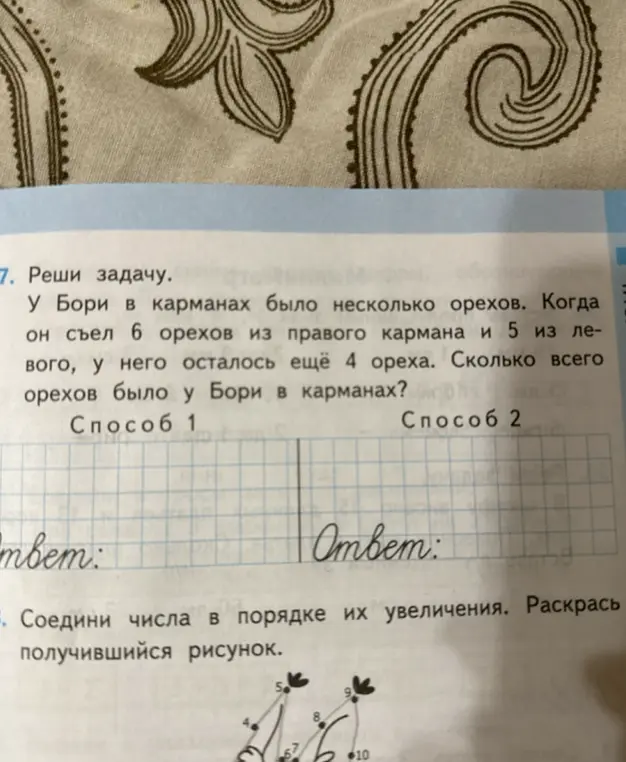 7. Реши задачу.
У Бори в карманах было несколько орехов. Когда
он съел 6 орехов из правого кармана и 5 из ле-
вого, у него осталось ещё 4 ореха. Сколько всего
орехов было у Бори в карманах?
Способ 1 Способ 2
твет: Ответ:
. Соедини числа в порядке их увеличения. Раскрась
получившийся рисунок.
5 9
4 8
6 7 10